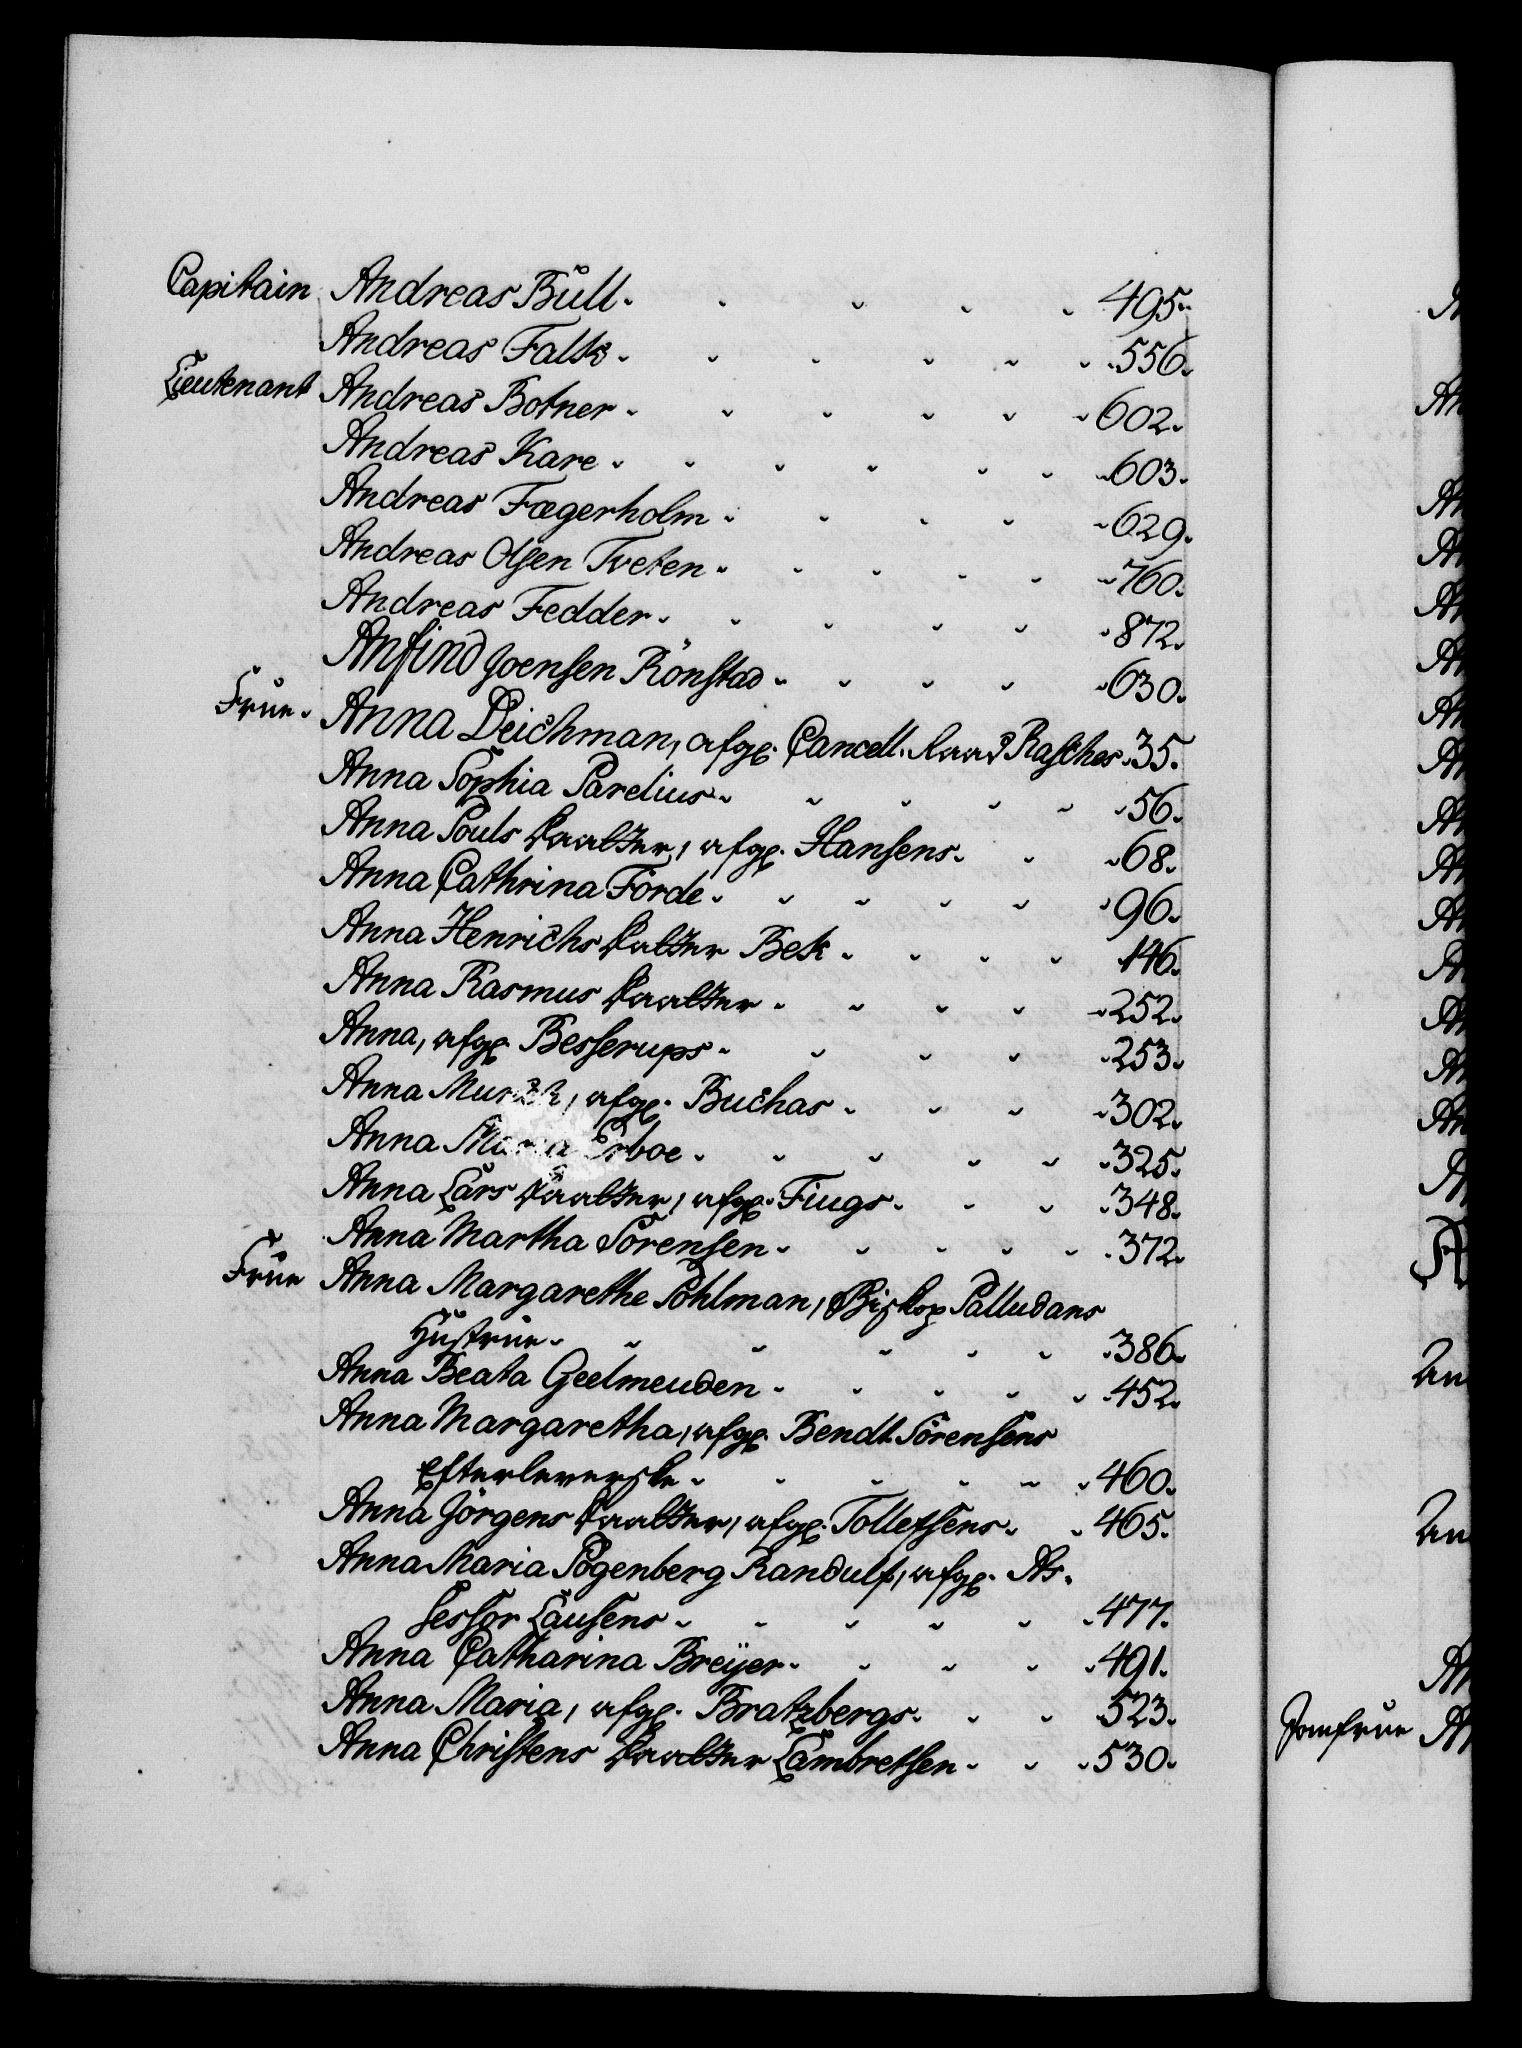 Capitain Andreas Bŭll. 495.
Andreas Falk. 556.
Lieutenant Andreas Botner. 602.
Andreas Kare. 603.
Andreas Fægerholm. 629.
Andreas Olsen Tveten. 760.
Andreas Fedder. 872.
Anfind Joensen Rönstad. 630.
Frue. Anna Deichman, afg. Cancell. Raad Rasches. 35.
Anna Sophia Parelius. 56.
Anna Pouls Daatter, afg. Hansens. 68.
Anna Cathrina Förde. 96.
Anna Henrichs Datter Bek. 146.
Anna Rasmus Daatter. 252.
Anna, afg. Besserups. 253.
Anna Munch, afg. Buchas. 302.
Anna Maria Erboe. 325.
Anna Lars Daatter, afg. Fiugs. 348.
Anna Martha Sörensen. 372.
Frue Anna Margarethe Pöhlman, Biskop Palludans
Hustrue. 386.
Anna Beata Geelmeuden. 452.
Anna Margaretha, afg. Bendt Sörensens
Efterleverske. 460.
Anna Jörgens Daatter, afg. Tollefsens. 465.
Anna Maria Pogenberg Randulf, afg. As-
sessor Lausens. 477.
Anna Catharina Breÿer. 491.
Anna Maria, afg. Bratzbergs. 523.
Anna Christens Daatter Lambretsen. 530.
Jomfrue